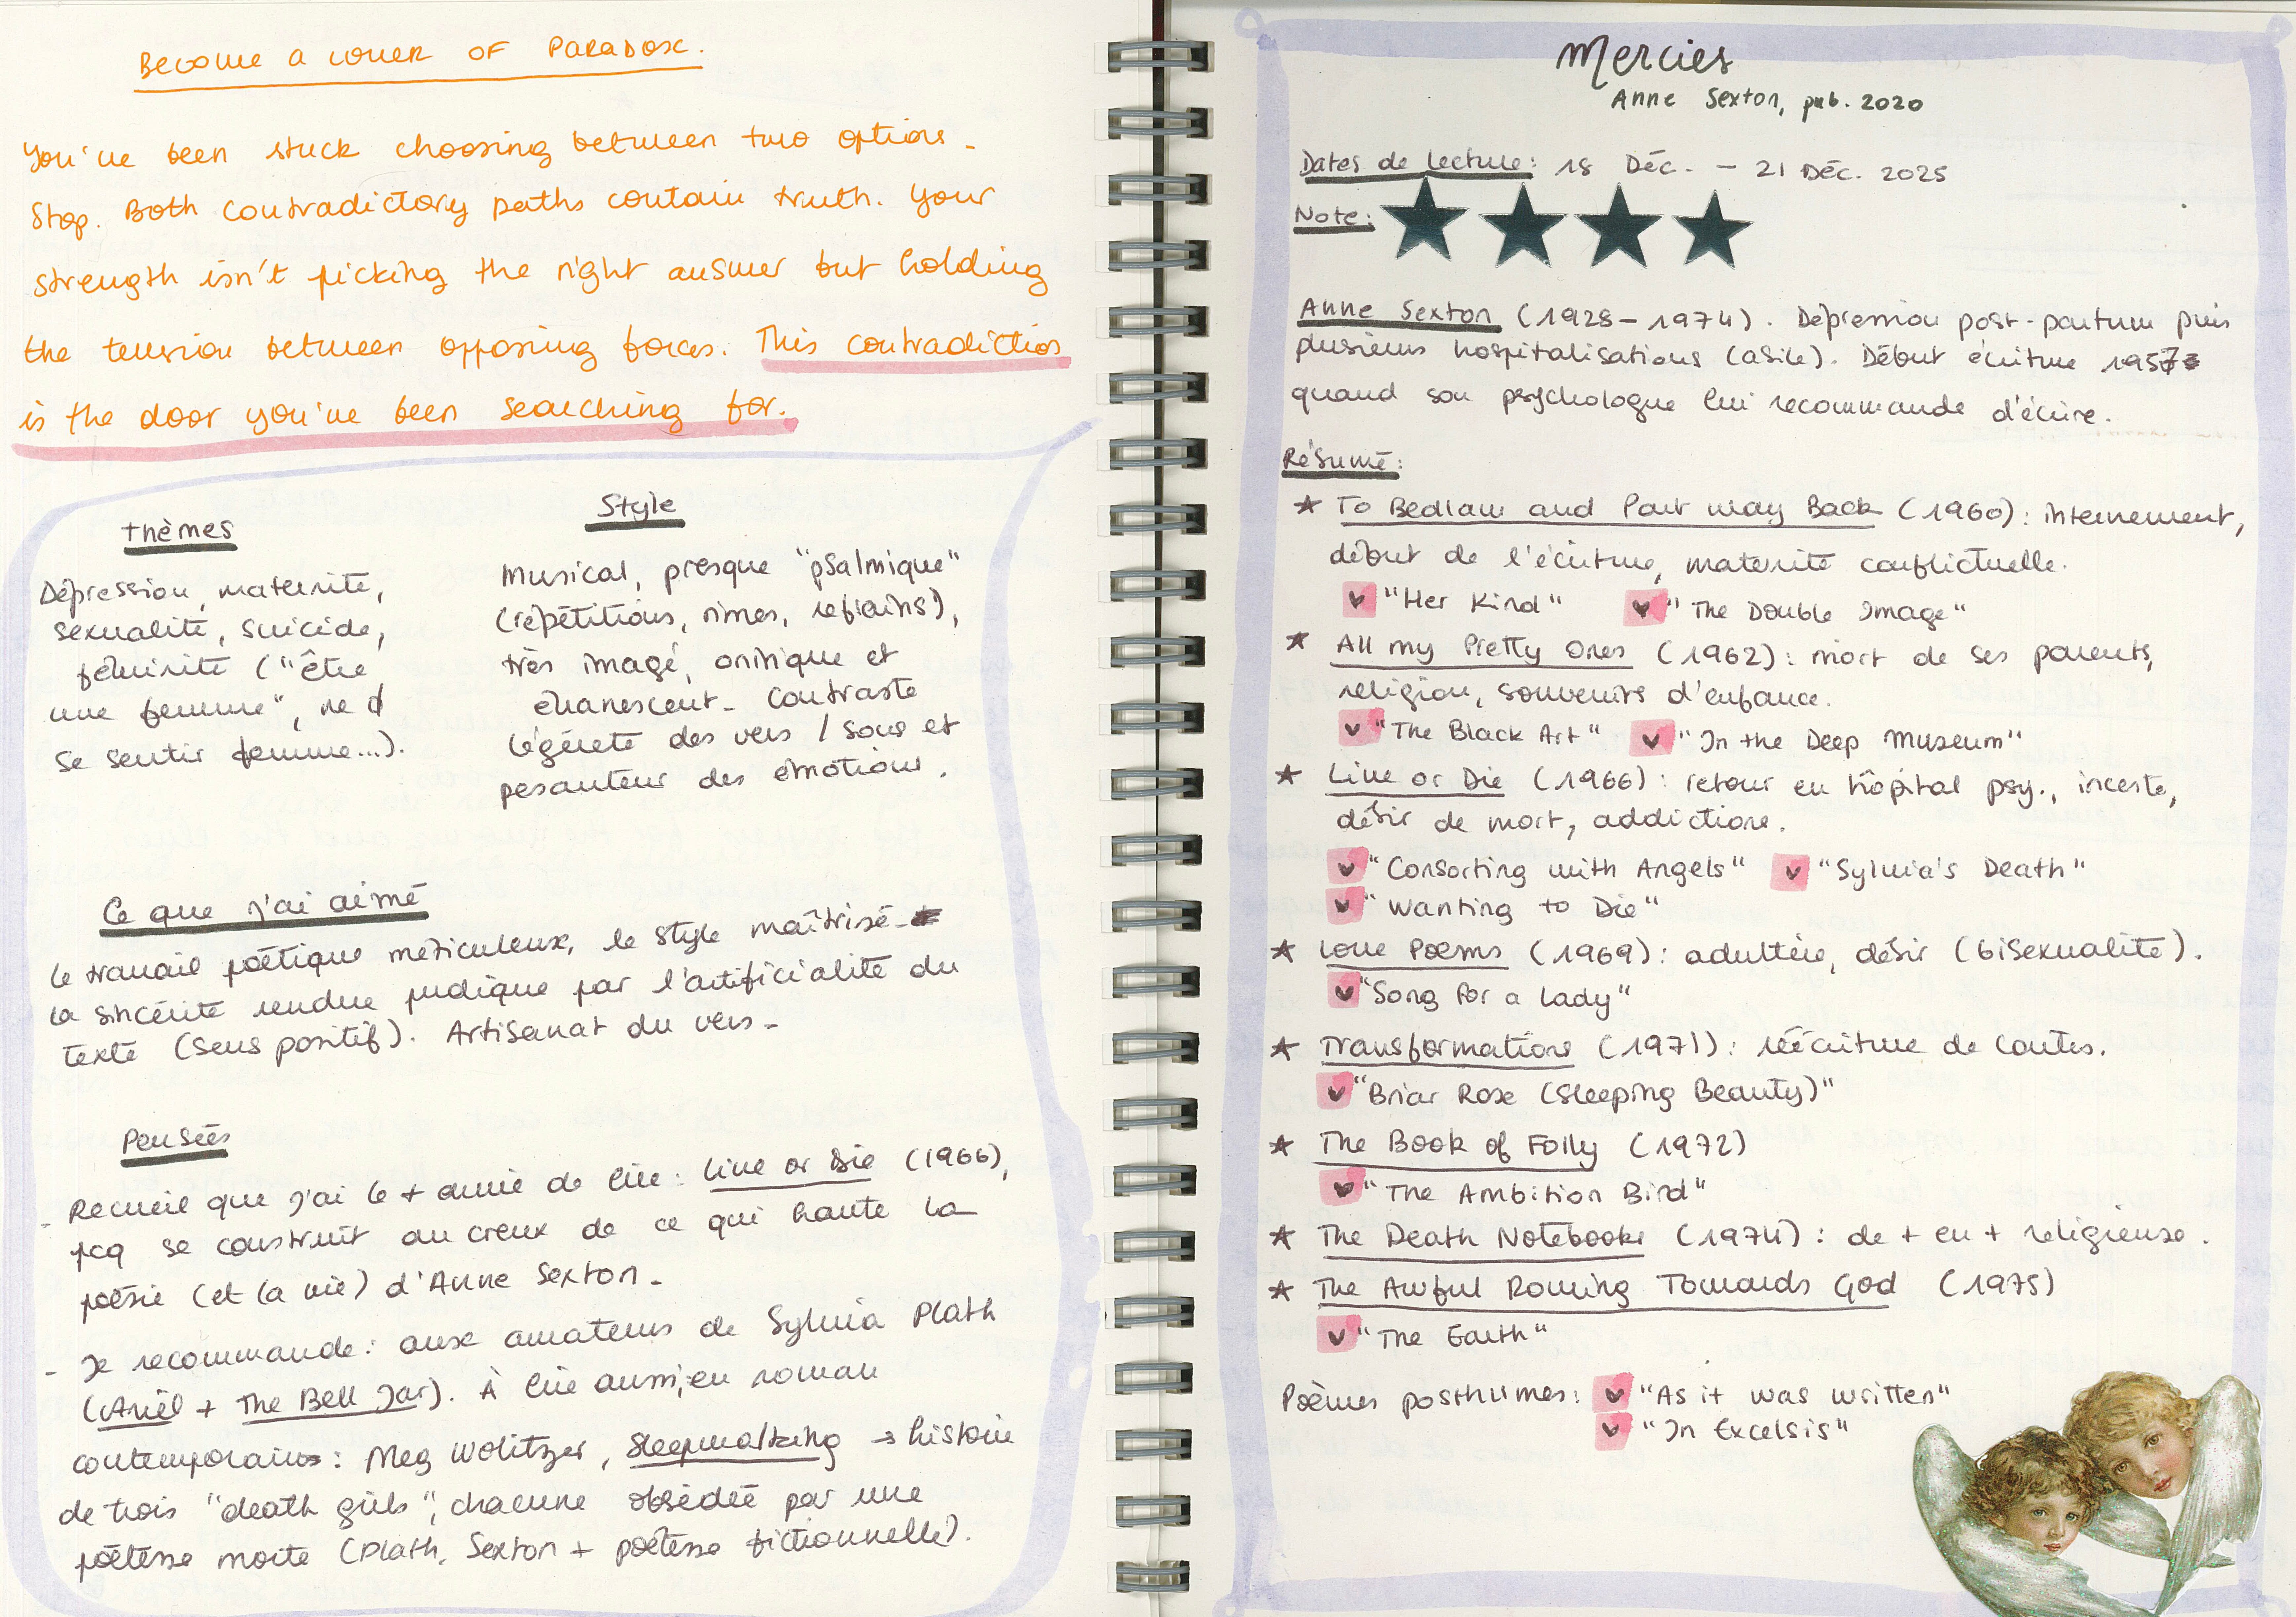 BECOME A LOVER OF PARADOX.
You've been stuck choosing between two options.
Stop. Both contradictory paths contain truth. Your
strength isn't picking the right answer but holding
the tension between opposing forces. This contradiction
is the door you've been searching for.
Thèmes
Dépression, maternité,
sexualité, suicide,
féminité ("être
une femme", ne
se sentir femme...).
Style
Musical, presque "psalmique"
(répétitions, rimes, refrains),
très imagé, onirique et
évanescent. Contraste
légèreté des vers / sons et
pesanteur des émotions.
Ce que j'ai aimé
Le travail poétique méticuleux, le style maîtrisé.
La sincérité rendue pudique par l'artificialité du
texte (sens positif). Artisanat du vers.
Pensées
- Recueil que j'ai le + aimé de lire : Live or Die (1966),
pcq se construit au creux de ce qui hante la
poésie (et la vie) d'Anne Sexton.
- Je recommande : aux amateurs de Sylvia Plath
(Ariel + The Bell Jar). À lire aussi, en roman
contemporain : Meg Wolitzer, Sleepwalking → histoire
de trois "death girls", chacune obsédée par une
poétesse morte (Plath, Sexton + poétesse fictionnelle).
Mercies
Anne Sexton, pub. 2020
Dates de lecture : 18 Déc. - 21 Déc. 2025
Note : ★★★★
Anne Sexton (1928-1974). Dépression post-partum puis
plusieurs hospitalisations (asile). Début écriture 1957
quand son psychologue lui recommande d'écrire.
Résumé :
★ To Bedlam and Part Way Back (1960) : internement,
début de l'écriture, maternité conflictuelle.
♥ "Her Kind" ♥ "The Double Image"
★ All my Pretty Ones (1962) : mort de ses parents,
religion, souvenirs d'enfance.
♥ "The Black Art" ♥ "In the Deep Museum"
★ Live or Die (1966) : retour en hôpital psy., inceste,
désir de mort, addictions.
♥ "Consorting with Angels" ♥ "Sylvia's Death"
♥ "Wanting to Die"
★ Love Poems (1969) : adultère, désir (bisexualité).
♥ "Song for a Lady"
★ Transformations (1971) : réécriture de contes.
♥ "Briar Rose (Sleeping Beauty)"
★ The Book of Folly (1972)
♥ "The Ambition Bird"
★ The Death Notebooks (1974) : de + en + religieuse.
★ The Awful Rowing Towards God (1975)
♥ "The Earth"
Poèmes posthumes : ♥ "As it was written"
♥ "In Excelsis"